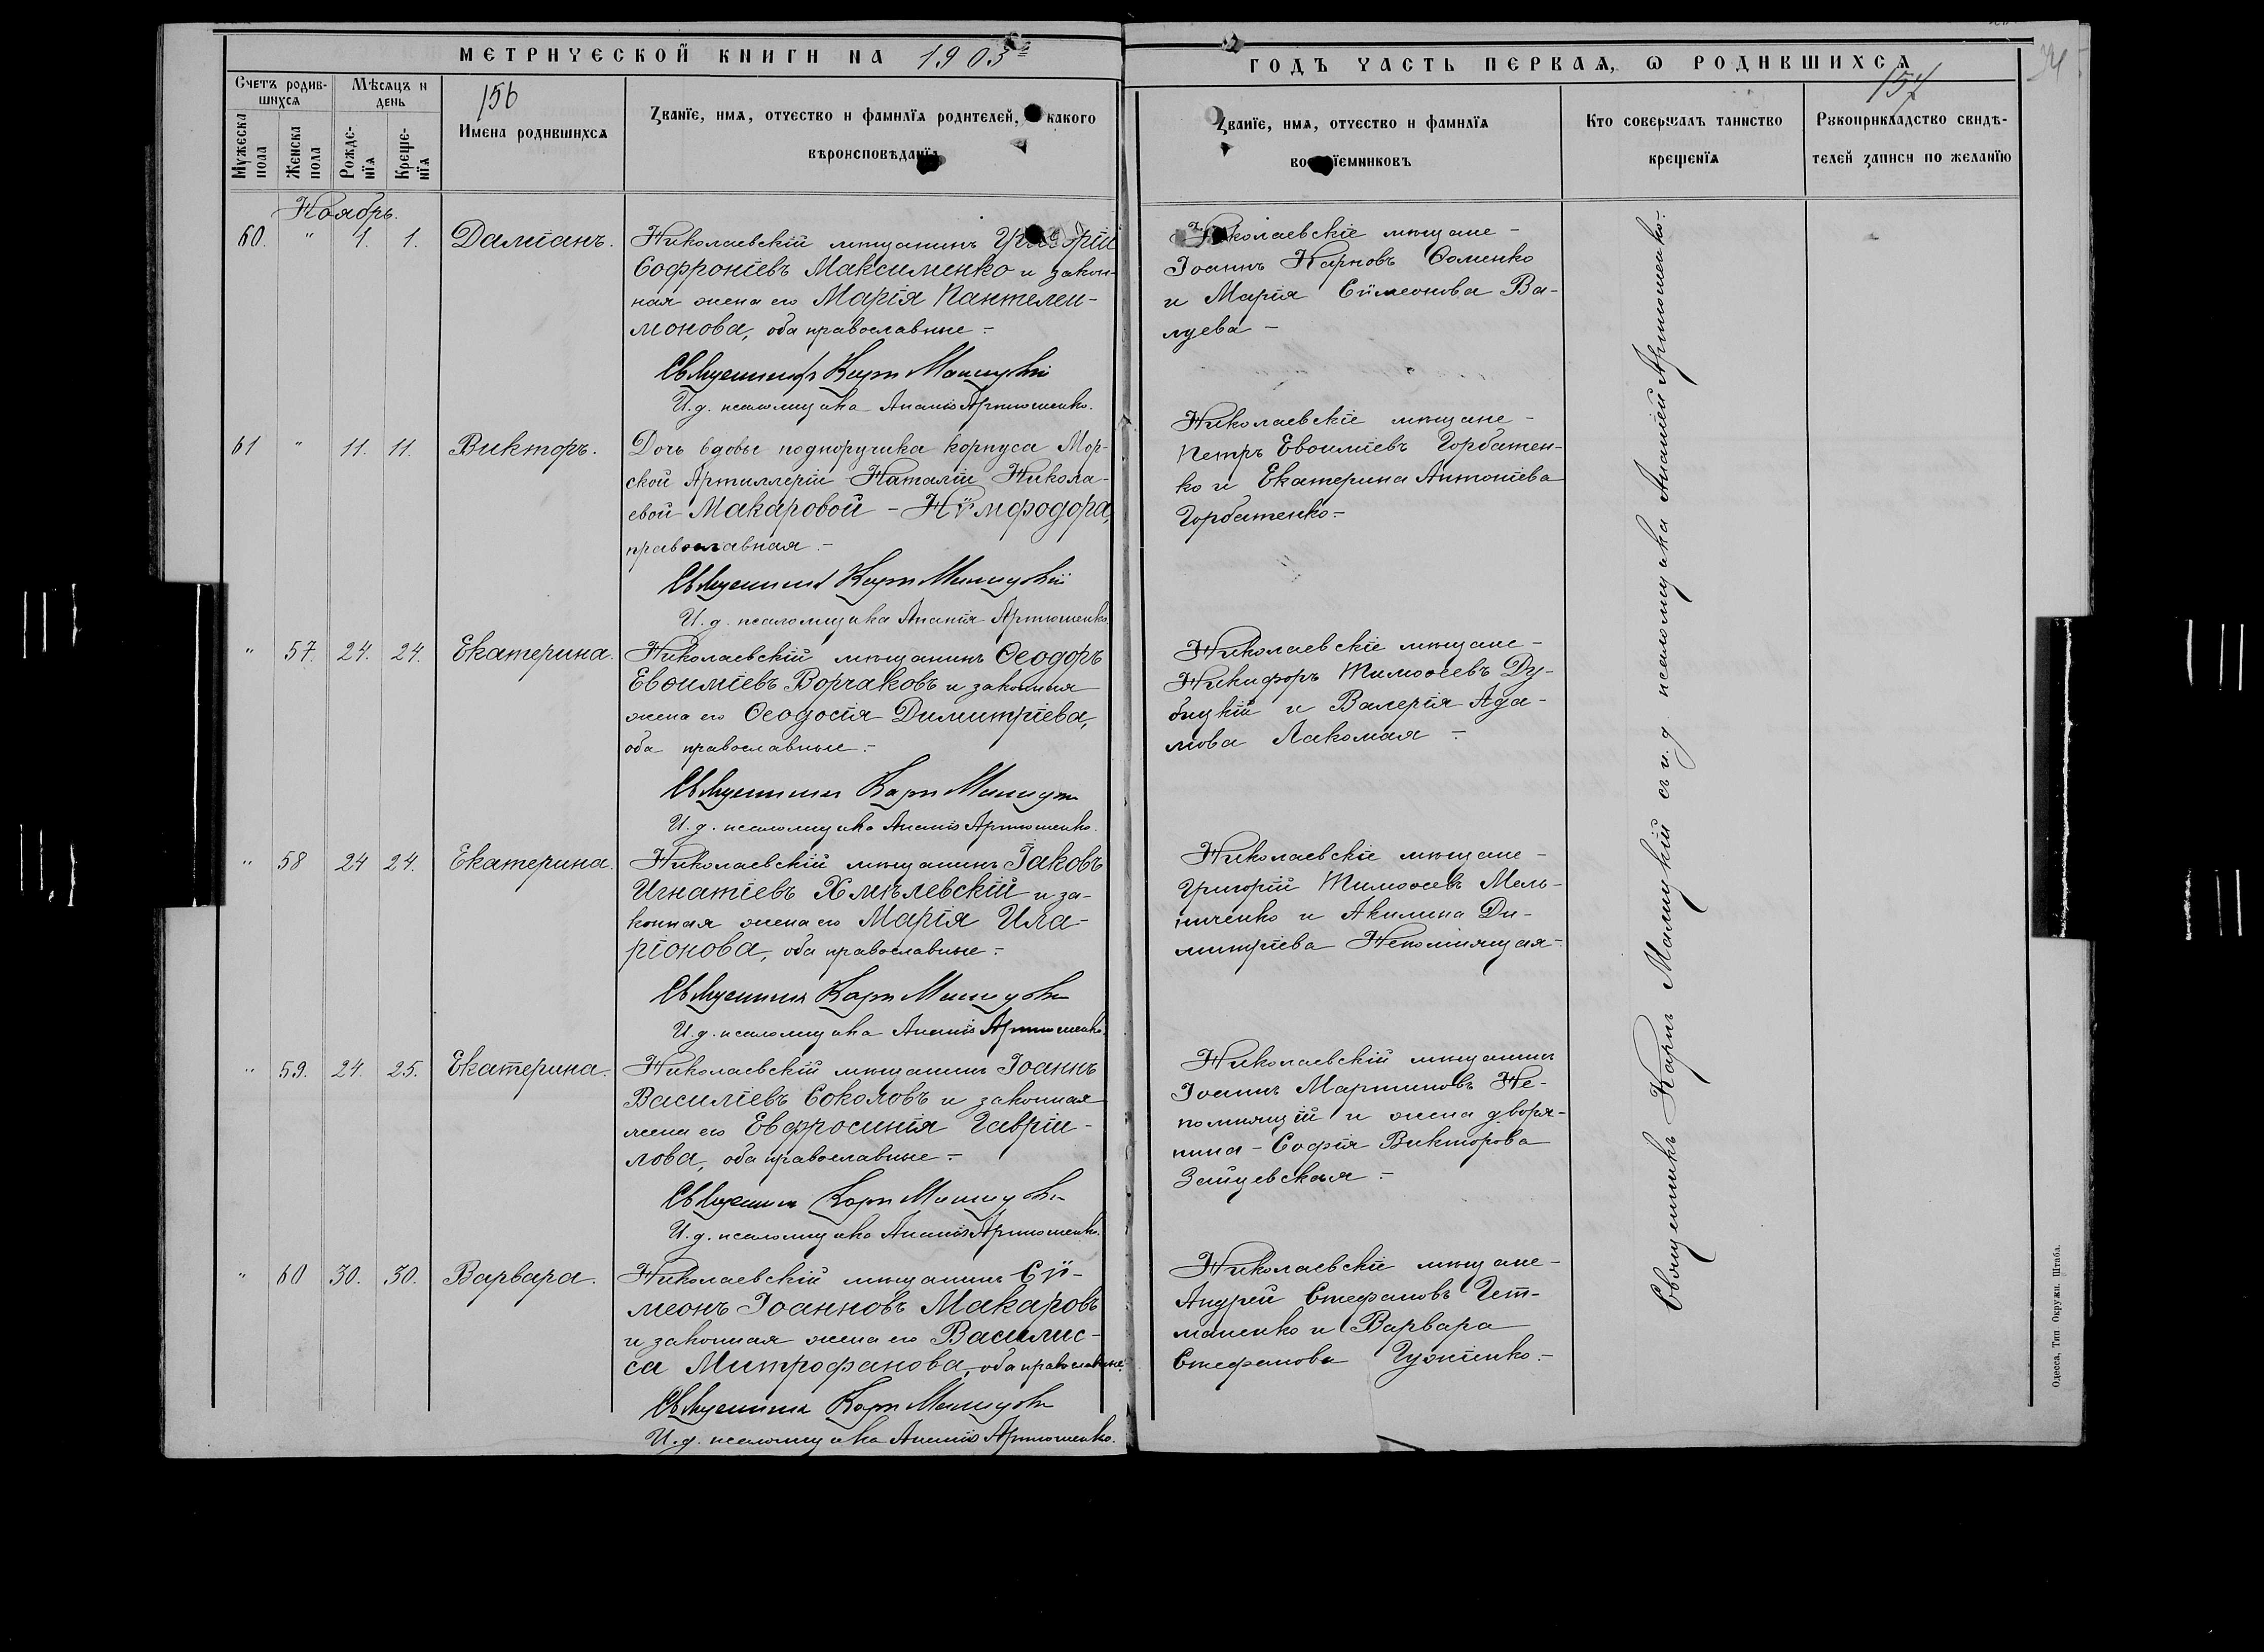 МЕТРИЧЕСКОЙ КНИГИ НА 1903
ГОДЪ ЧАСТЬ ПЕРВАЯ, Ѡ РОДИВШИХСЯ
156
157
Счетъ родив-
шихся
Мѣсяцъ и
день
Мужеска
пола
Женска
пола
Рожде-
нїя
Креще-
нїя
Имена родившихся
Званїе, имя, отчество и фамилїя родителей, какого
вѣроисповѣданїя
Званїе, имя, отчество и фамилїя
Кто совершалъ таинство
крещенїя
Рукоприкладство свидѣ-
телей записи по желанїю
Ноябрь.
60. " 1. 1. Даміанъ.
Николаевскій мѣщанинъ Григорій
Софроніевъ Максименко и закон-
ная жена его Марія Пантелеи-
монова, обa православные -
Священникъ Карпъ Машицкій
И. д. псаломщика Ананій Артюшенко.
Николаевскіе мѣщане -
Іоаннъ Карповъ Ѳоменко
и Марія Сѵмеонова Ва-
луева -
61 " 11. 11. Викторъ.
Дочь вдовы подпоручика корпуса Мор-
ской Артиллеріи Наталіи Никола-
евой Макаровой - Нѵмфодора,
православная. -
Священникъ Карпъ Машицкій
И. д. псаломщика Ананія Артюшенко.
Николаевскіе мѣщане -
Петръ Евѳиміевъ Горбатен-
ко и Екатерина Антоніева
Горбатенко -
" 57. 24. 24. Екатерина.
Николаевскій мѣщанинъ Ѳеодоръ
Евѳиміевъ Ворчаковъ и законная
жена его Ѳеодосія Димитріева,
оба православные. -
Священникъ Карпъ Машицкій
И. д. псаломщика Ананій Артюшенко.
Николаевскіе мѣщане -
Никифоръ Тимоѳеевъ Ду-
бицкій и Валерія Ада-
мова Лакомая -
" 58 24 24. Екатерина.
Николаевскій мѣщанинъ Іаковъ
Игнатіевъ Хмѣлевскій и за-
конная жена его Марія Ила-
ріонова, оба православные -
Священникъ Карпъ Машицкій
И. д. псаломщика Ананій Артюшенко.
Николаевскіе мѣщане -
Григорій Тимоѳеевъ Мель-
ниченко и Акилина Ди-
митріева Непомнящая -
" 59. 24. 25. Екатерина.
Николаевскій мѣщанинъ Іоаннъ
Василіевъ Соколовъ и законная
жена его Евфросинія Гавріи-
лова, оба православные -
Священникъ Карпъ Машицкій
И. д. псаломщика Ананій Артюшенко.
Николаевскій мѣщанинъ
Іоаннъ Мартиновъ Не-
помнящій и жена дворя-
нина - Софія Викторова
Зайцевская -
" 60 30. 30. Варвара.
Николаевскій мѣщанинъ Сѵ-
меонъ Іоанновъ Макаровъ
и законная жена его Василис-
са Митрофанова, оба православные.
Священникъ Карпъ Машицкій
И. д. псаломщика Ананій Артюшенко.
Николаевскіе мѣщане -
Андрей Стефановъ Гет-
маненко и Варвара
Стефанова
Священникъ Карпъ Машицкій съ и. д. псаломщика Ананіей Артюшенко.
Одесса, Тип Окружн. Штаба.